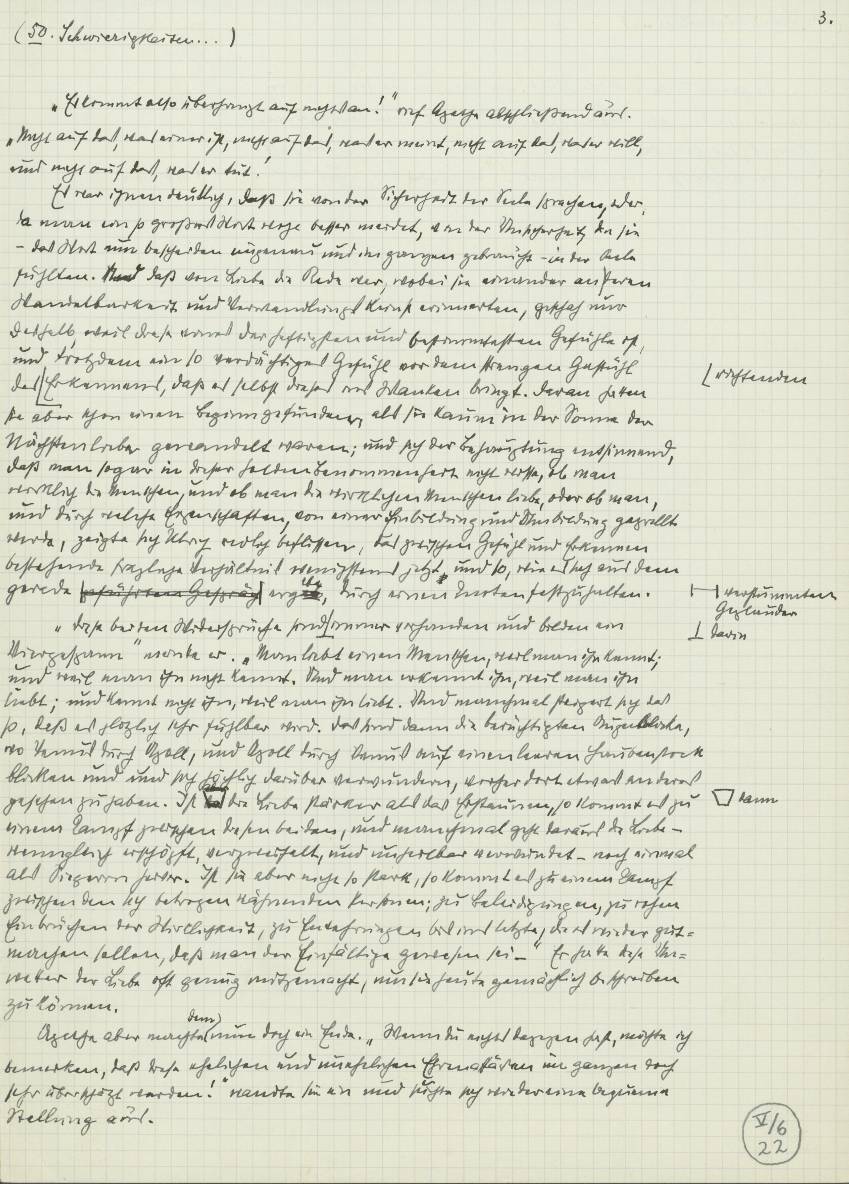 3.
(50. Schwierigkeiten...)
„Es kommt also überhaupt auf nichts an!" rief Agathe abschließend aus.
„Nicht auf das, was einer ist, nicht auf das, was er meint, nicht auf das, was er will,
und nicht auf das, was er tut!"
Es war ihnen deutlich, daß sie von der Sicherheit der Seele sprachen, oder,
da man ein so großes Wort wohl besser meidet, von der Unsicherheit, die sie
– das Wort nun bescheiden ungenau und im ganzen gebraucht – in der Seele
fühlten. Und daß von Liebe die Rede war, wobei sie einander an deren
Wandelbarkeit und Verwandlungskunst erinnerten, geschah nur
deshalb, weil diese eines der heftigsten und bestimmtesten Gefühle ist,
und trotzdem ein so verdächtiges Gefühl vor dem strengen Gefühl
des ⌊Erkennens, daß es selbst dieses ins Wanken bringt. Daran hatten ⌊richtenden
sie aber schon einen Beginn gefunden, als sie kaum in der Sonne der
Nächstenliebe gewandelt waren; und sich der Behauptung entsinnend,
daß man sogar in dieser holden Benommenheit nicht wisse, ob man
wirklich die Menschen, und ob man die wirklichen Menschen liebe, oder ob man,
und durch welche Eigenschaften, von einer Einbildung und Umbildung geprellt
werde, zeigte sich Ulrich redlich beflissen, das zwischen Gefühl und Erkennen
bestehende fragliche Verhältnis wenigstens jetzt, und so, wie es sich aus dem
gerade geführten Gespräch ergab, durch einen Knoten festzuhalten. ⊢⊣ verstummten
Geplauder
„Diese beiden Widersprüche sind immer vorhanden und bilden ein ⊥ darin
Viergespann" meinte er. „Man liebt einen Menschen, weil man ihn kennt;
und weil man ihn nicht kennt. Und man erkennt ihn, weil man ihn
liebt; und kennt nicht ihn, weil man ihn liebt. Und manchmal steigert sich das
so, daß es plötzlich sehr fühlbar wird. Das sind dann die berüchtigten Augenblicke,
wo Venus durch Apoll, und Apoll durch Venus auf einen leeren Haubenstock
blicken und und sich höchlich darüber verwundern, vorher dort etwas anderes
gesehen zu haben. Ist die Liebe stärker als das Erstaunen, so kommt es zu dann
einem Kampf zwischen diesen beiden, und manchmal geht daraus die Liebe –
wenngleich erschöpft, verzweifelt, und unheilbar verwundet – noch einmal
als Siegerin hervor. Ist sie aber nicht so stark, so kommt es zu einem Kampf
zwischen den sich betrogen wähnenden Personen; zu Beleidigungen, zu rohen
Einbrüchen der Wirklichkeit, zu Entehrungen bis ins letzte, die es wieder gut=
machen sollen, daß man der Einfältige gewesen sei –" Er hatte diese Un=
wetter der Liebe oft genug mitgemacht, um sie heute gemächlich beschreiben
zu können.
Agathe aber machte dem nun doch ein Ende. „Wenn du nichts dagegen hast, möchte ich
bemerken, daß diese ehelichen und unehelichen Ehrenaffären im ganzen doch
sehr überschätzt werden!" wandte sie ein und suchte sich wieder eine bequeme
Stellung aus.
V/6
22